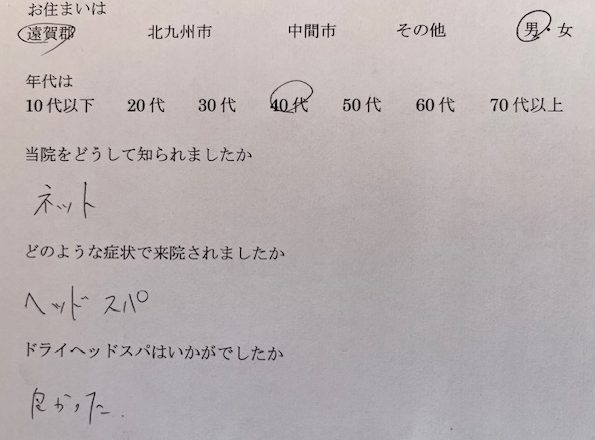 お住まいは
遠賀郡 北九州市 中間市 その他 男・女
年代は
10代以下 20代 30代 40代 50代 60代 70代以上
当院をどうして知られましたか
ネット
どのような症状で来院されましたか
ヘッドスパ
ドライヘッドスパはいかがでしたか
良かった.